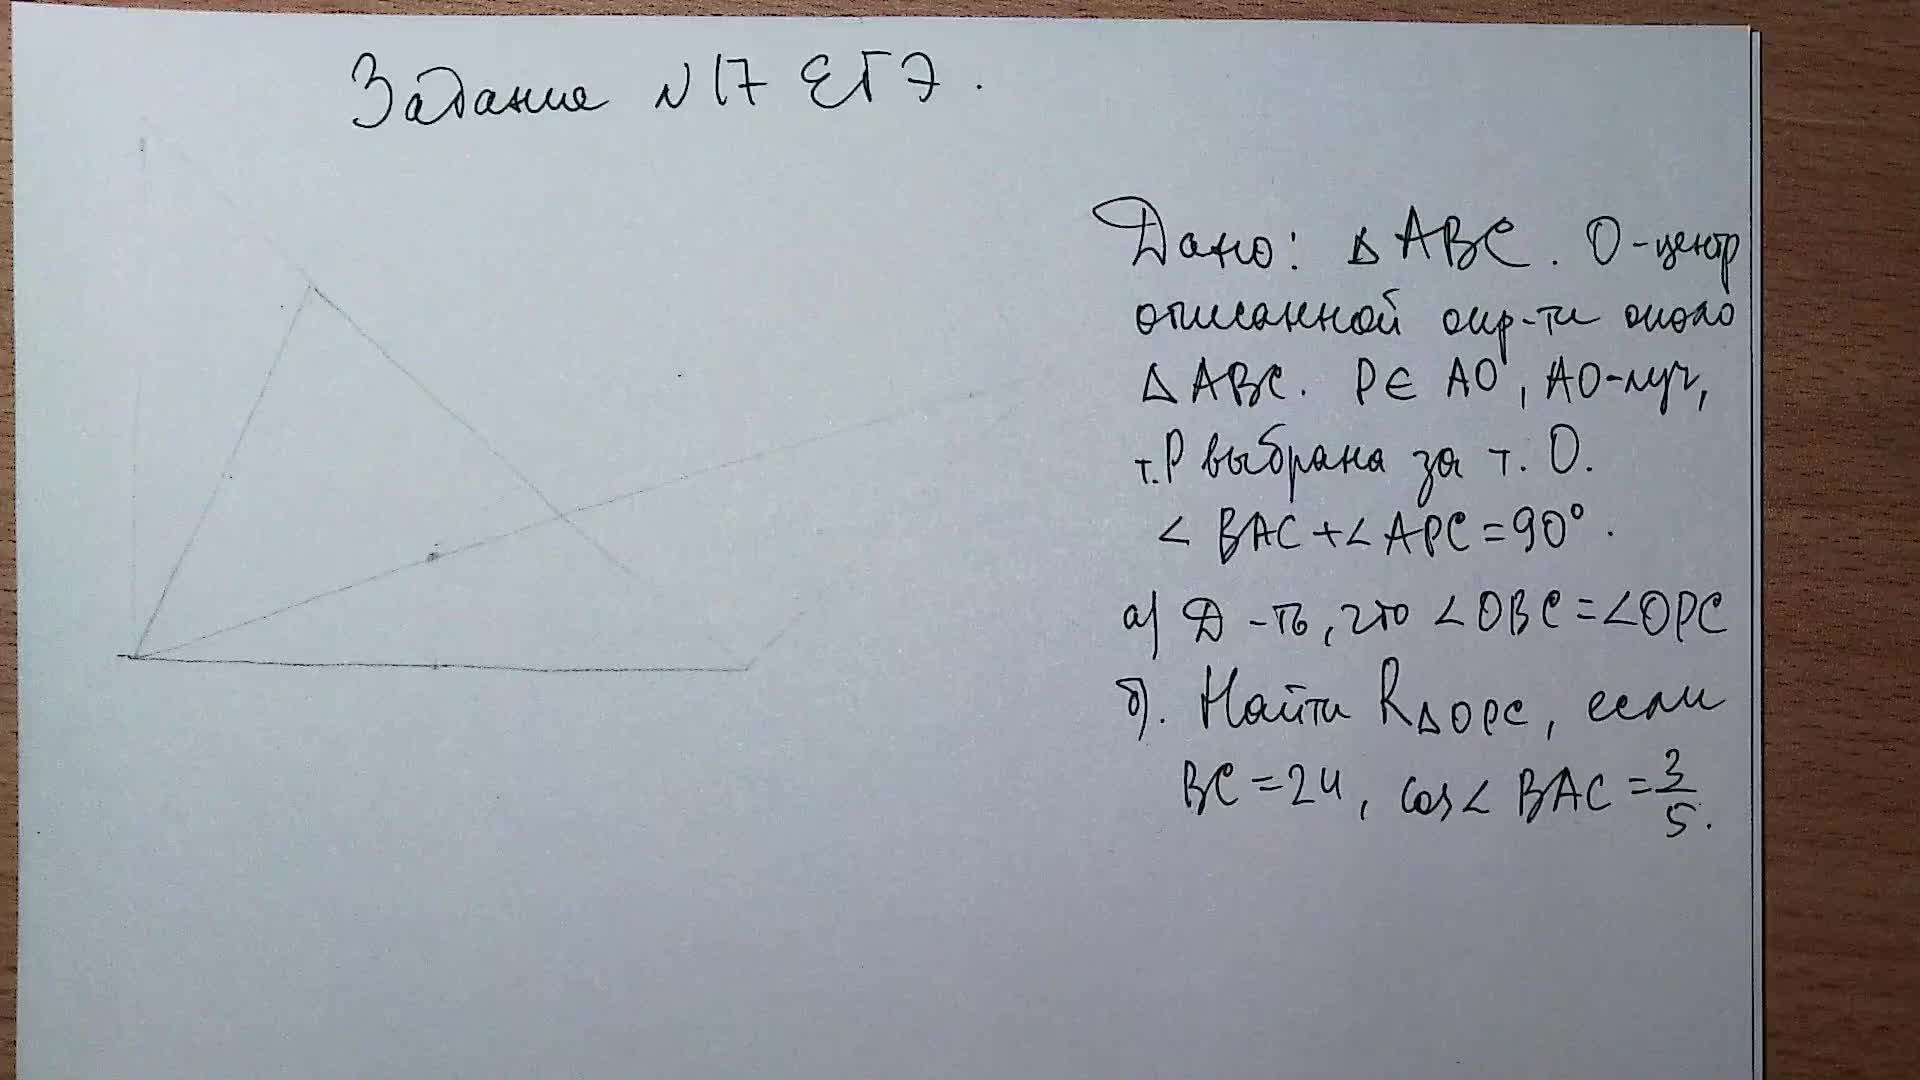 Задание N17 ЕГЭ.
Дано: △ABC. O-центр
описанной окр-ти около
△ABC. P∈ AO, AO-луч,
т.P выбрана за т. O.
∠ BAC+∠ APC=90°.
а) Д-ть, что ∠OBC=∠OPC
б). Найти R△OPC, если
BC=24, cos∠ BAC=3/5.